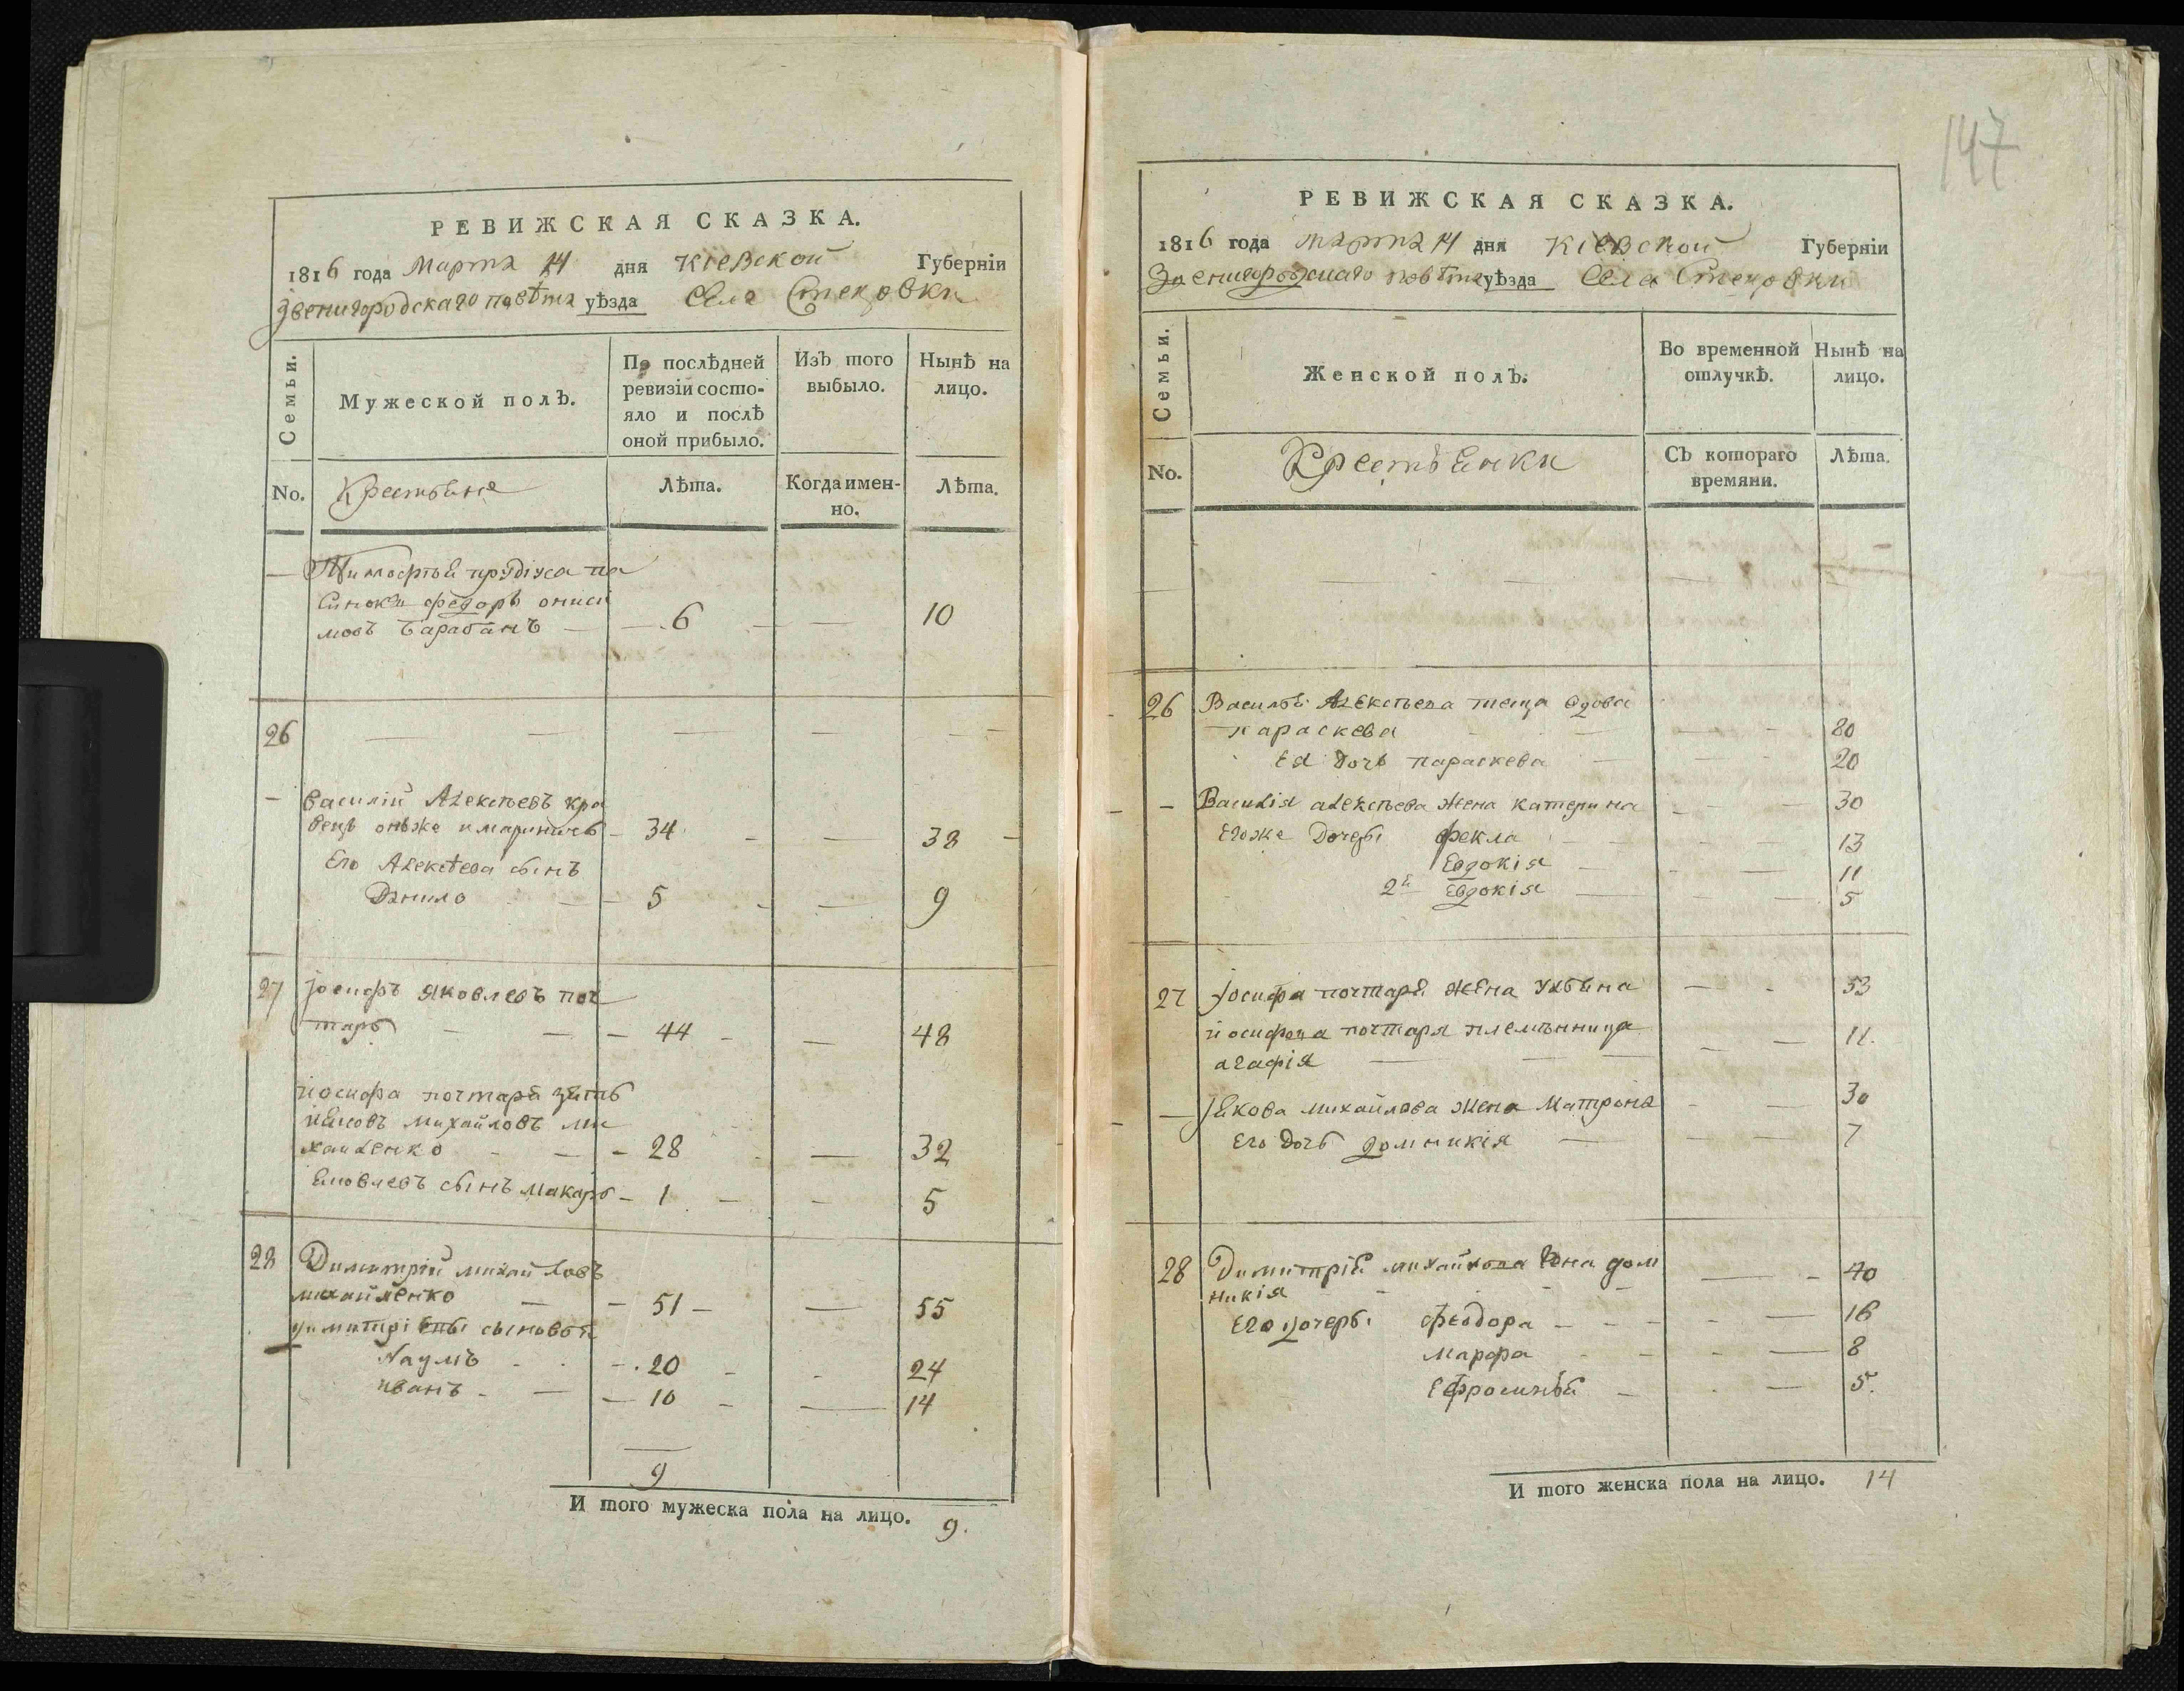 РЕВИЖСКАЯ СКАЗКА.
1816 года Марта 14 дня Кіевской Губерніи
Звенигородскаго повѣта уѣзда Села Стецовки
Семьи.
Мужеской полъ.
По послѣдней ревизіи состо-
яло и послѣ
оной прибыло.
Изъ того
выбыло.
Нынѣ на
лицо.
No.
Крестьяне
Лѣта.
Когда имен-
но.
Лѣта.
Тимофѣй
Синокъ федоръ ониси
мовъ барабанъ — 6 — 10
26 — — — — —
Василій Алексѣевъ кра
вецъ онъже — 34 — 38
Его Алексѣева сынъ
Данило — 5 — 9
27 Іосифъ Яковлевъ поч
тарь — 44 — 48
Иосифа почтаря зять
Яковъ михайловъ ми
хайленко — 28 — 32
Яковлевъ сынъ Макаръ — 1 — 5
28 Димитрій михайловъ
михайленко — 51 — 55
сыновья
Наумъ — 20 — 24
Иванъ — 10 — 14
9
И того мужеска пола на лицо. 9.
147
РЕВИЖСКАЯ СКАЗКА.
1816 года марта 14 дня Кіевской Губерніи
Звенигородскаго повѣта уѣзда Села Стецовки
Семьи.
Женской полъ.
Во временной
отлучкѣ.
Нынѣ на
лицо.
No.
Крестьянки
Съ котораго
времяни.
Лѣта.
26 Василья Алексѣева теща вдова
параскева — 80
Ея дочь параскева — 20
— Василія алексѣева жена катерина — 30
Егоже дочери фекла — 13
Евдокія — 11
2я Евдокія — 5
27 Іосифа почтаря жена Ульяна — 53
иосифова почтаря племѣнница — 11.
агафія
— Якова михайлова жена Матрона — 30
Его дочь домникія — 7
28 Димитрія михайлова жена дом — 40
никія
Его дочери феодора — 16
Марфа — 8
Ефросинья — 5.
И того женска пола на лицо. 14